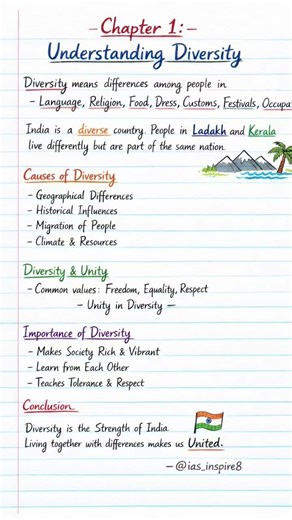 – Chapter 1: –
Understanding Diversity
Diversity means differences among people in
– Language, Religion, Food, Dress, Customs, Festivals, Occupa
India is a diverse country. People in Ladakh and Kerala
live differently but are part of the same nation.
Causes of Diversity
– Geographical Differences
– Historical Influences
– Migration of People
– Climate & Resources
Diversity & Unity
– Common values: Freedom, Equality, Respect
– Unity in Diversity –
Importance of Diversity
– Makes Society Rich & Vibrant
– Learn from Each Other
– Teaches Tolerance & Respect
Conclusion
Diversity is the Strength of India.
Living together with differences makes us United.
– @ias_inspire8